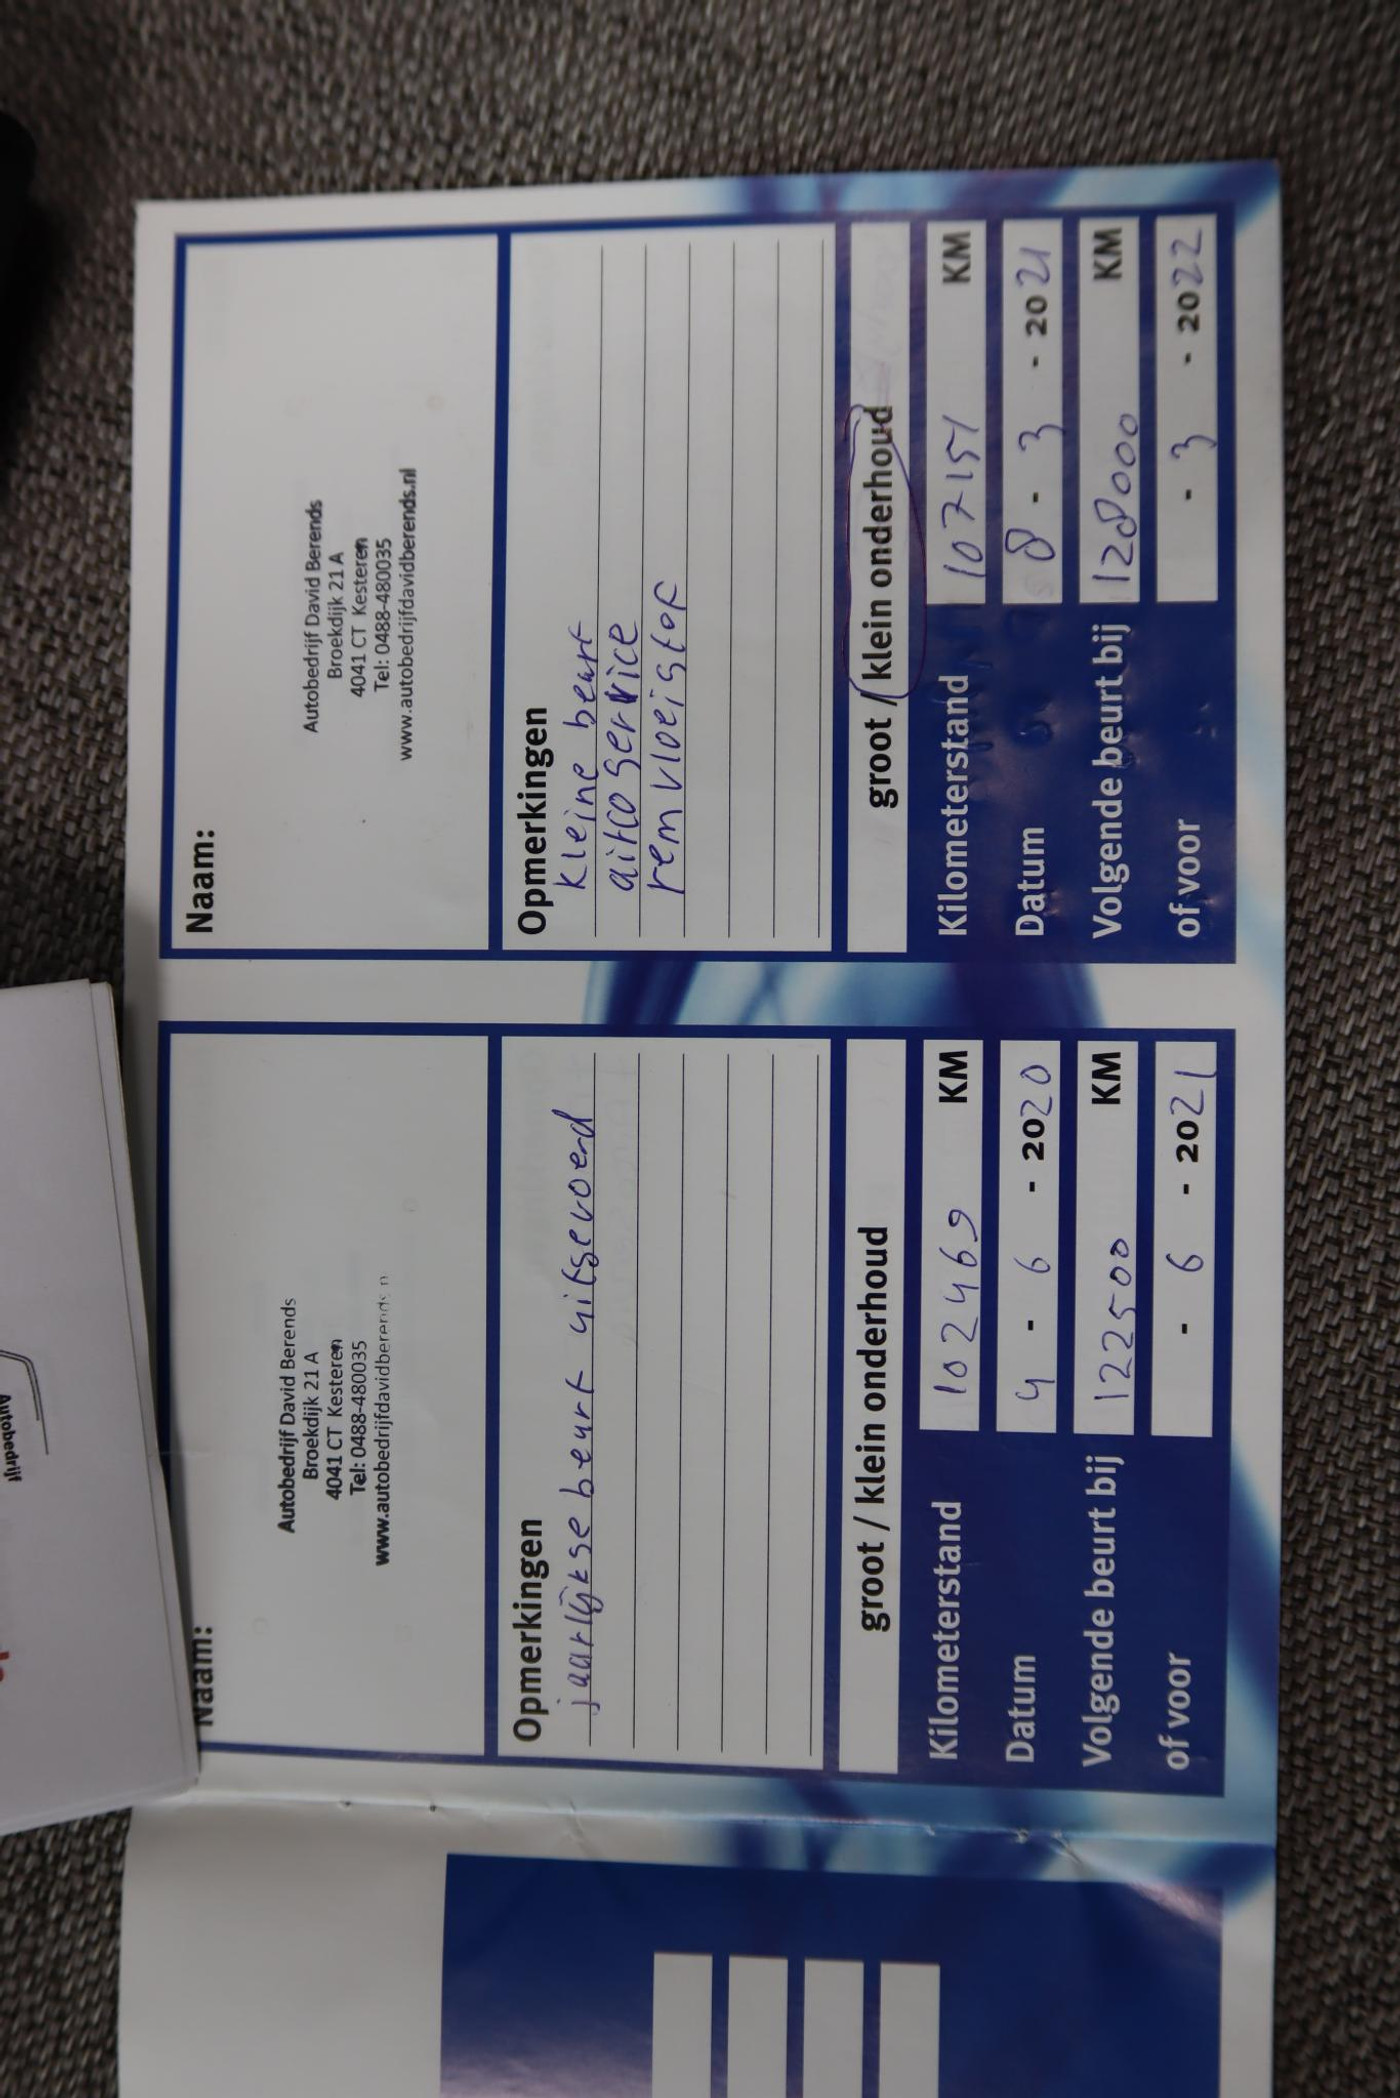 Autobedrijf
Naam:
Autobedrijf David Berends
Broekdijk 21 A
4041 CT Kesteren
Tel: 0488-480035
www.autobedrijfdavidberends.n
Opmerkingen
jaarlijkse beurt uitgevoerd
groot / klein onderhoud
Kilometerstand 102469 KM
Datum 4 - 6 - 2020
Volgende beurt bij 122500 KM
of voor - 6 - 2021
Naam:
Autobedrijf David Berends
Broekdijk 21 A
4041 CT Kesteren
Tel: 0488-480035
www.autobedrijfdavidberends.nl
Opmerkingen
kleine beurt
airco service
remvloeistof
groot / klein onderhoud
Kilometerstand 107151 KM
Datum 8 - 3 - 2021
Volgende beurt bij 128000 KM
of voor - 3 - 2022